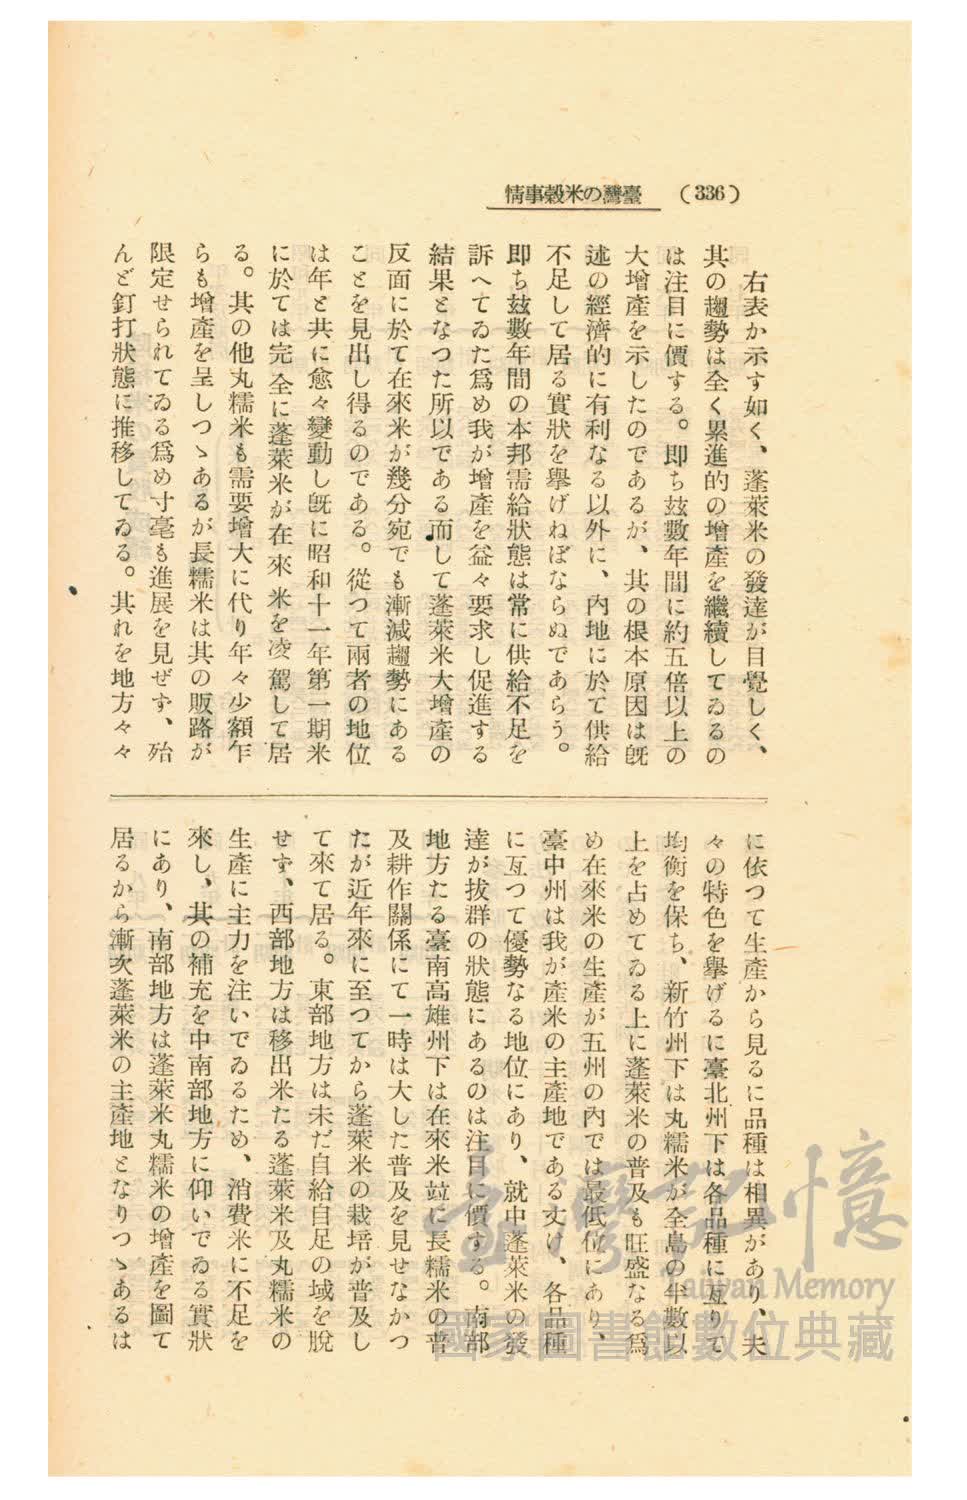 (336) 臺灣の米穀事情
右表か示す如く、蓬萊米の發達が目覺しく、
其の趨勢は全く累進的の增產を繼續してゐるの
は注目に價する。卽ち玆數年間に約五倍以上の
大增產を示したのであるが、其の根本原因は旣
述の經濟的に有利なる以外に、內地に於て供給
不足して居る實狀を擧げねばならぬであらう。
卽ち玆數年間の本邦需給狀態は常に供給不足を
訴へてゐた爲め我が增產を益々要求し促進する
結果となつた所以である而して蓬萊米大增產の
反面に於て在來米が幾分宛でも漸減趨勢にある
ことを見出し得るのである。從つて兩者の地位
は年と共に愈々變動し旣に昭和十一年第一期米
に於ては完全に蓬萊米が在來米を凌駕して居
る。其の他丸糯米も需要增大に代り年々少額乍
らも增產を呈しつゝあるが長糯米は其の販路が
限定せられてゐる爲め寸毫も進展を見ぜず、殆
んど釘打狀態に推移してゐる。其れを地方々々
に依つて生產から見るに品種は相異があり、夫
々の特色を擧げるに臺北州下は各品種に亙りて
均衡を保ち、新竹州下は丸糯米が全島の半數以
上を占めてゐる上に蓬萊米の普及も旺盛なる爲
め在來米の生產が五州の內では最低位にあり、
臺中州は我が產米の主產地である丈け、各品種
に亙つて優勢なる地位にあり、就中蓬萊米の發
達が拔群の狀態にあるのは注目に價する。南部
地方たる臺南高雄州下は在來米竝に長糯米の普
及耕作關係にて一時は大した普及を見せなかつ
たが近年來に至つてから蓬萊米の栽培が普及し
て來て居る。東部地方は未だ自給自足の域を脫
せず、西部地方は移出米たる蓬萊米及丸糯米の
生產に主力を注いでゐるため、消費米に不足を
來し、其の補充を中南部地方に仰いでゐる實狀
にあり、南部地方は蓬萊米丸糯米の增產を圖て
居るから漸次蓬萊米の主產地となりつゝあるは
臺灣記憶
Taiwan Memory
國家圖書館數位典藏